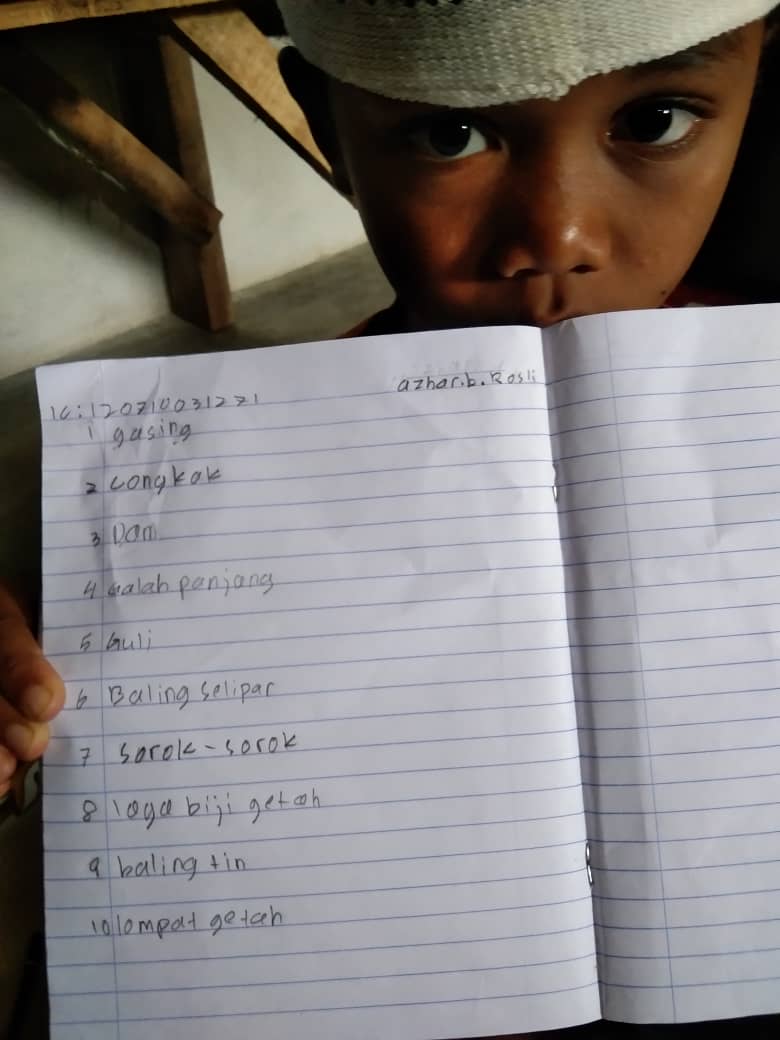 azhar.b.Rosli
1 gasing
2 congkak
3 Dam
4 Galah panjang
5 Guli
6 Baling selipar
7 sorok-sorok
8 laga biji getah
9 baling tin
10 lompat getah